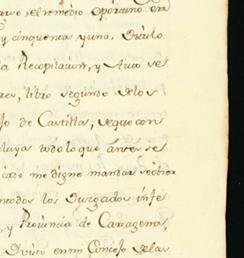 el remedio oportuno en
y cinquenta y uno, titulo
la Recopilacion, y Aua se
res, libro segundo delos
jo de Castilla, de que con
cluya todo lo que antes se
caso me digne mandar recivir
entodos los Juzgados infe
, y Provincia de Cartagena,
Visto enmi Consejo delas